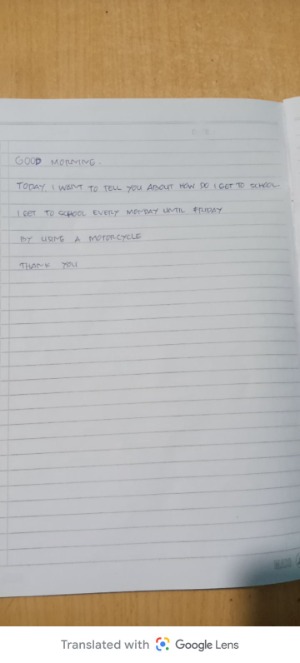 GOOD MORNING.
TODAY, I WANT TO TELL YOU ABOUT HOW DO I GET TO SCHOOL.
I GET TO SCHOOL EVERY MONDAY UNTIL FRIDAY
BY USING A MOTORCYCLE
THANK YOU
Translated with Google Lens